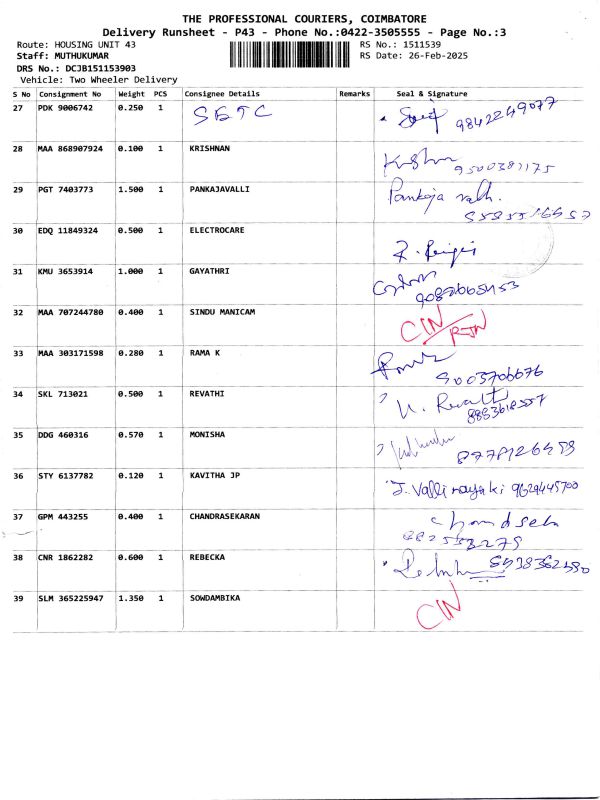 THE PROFESSIONAL COURIERS, COIMBATORE
Delivery Runsheet - P43 - Phone No.:0422-3505555 - Page No.:3
Route: HOUSING UNIT 43 RS No.: 1511539
Staff: MUTHUKUMAR RS Date: 26-Feb-2025
DRS No.: DCJB151153903
Vehicle: Two Wheeler Delivery
S No Consignment No Weight PCS Consignee Details Remarks Seal & Signature
27 PDK 9006742 0.250 1 SETC 9842249077
28 MAA 868907924 0.100 1 KRISHNAN
9500382175
29 PGT 7403773 1.500 1 PANKAJAVALLI Pankoja valli.
30 EDQ 11849324 0.500 1 ELECTROCARE
31 KMU 3653914 1.000 1 GAYATHRI
32 MAA 707244780 0.400 1 SINDU MANICAM CIN
RTN
33 MAA 303171598 0.280 1 RAMA K
9003706676
34 SKL 713021 0.500 1 REVATHI
8883618557
35 DDG 460316 0.570 1 MONISHA
36 STY 6137782 0.120 1 KAVITHA JP J. Valli nayaki 9629445700
37 GPM 443255 0.400 1 CHANDRASEKARAN
38 CNR 1862282 0.600 1 REBECKA
39 SLM 365225947 1.350 1 SOWDAMBIKA CIN